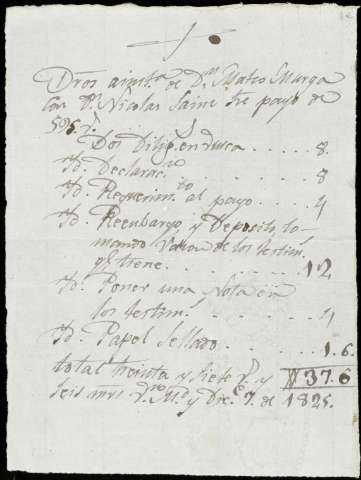 Dros a inst.a de D.n Mateo Murga
con D.n Nicolas Sainz sre pago de
595. r.s
Dos Dilig.s en busca . . . . 8.
Yd. Declarac.n . . . . 8
Yd. Requerim.to al pago . . . 4
Yd. Reembargo, y Deposito, to-
mando razon de los testim.s
q.e tiene . . . . 12
Yd. Poner una Nota en
los testim.s . . . . 4
Yd. Papel Sellado . . . . 1.6.
total treinta y siete r.s y 37.6
seis mrs v.on M.d y Dre. 7. de 1825.